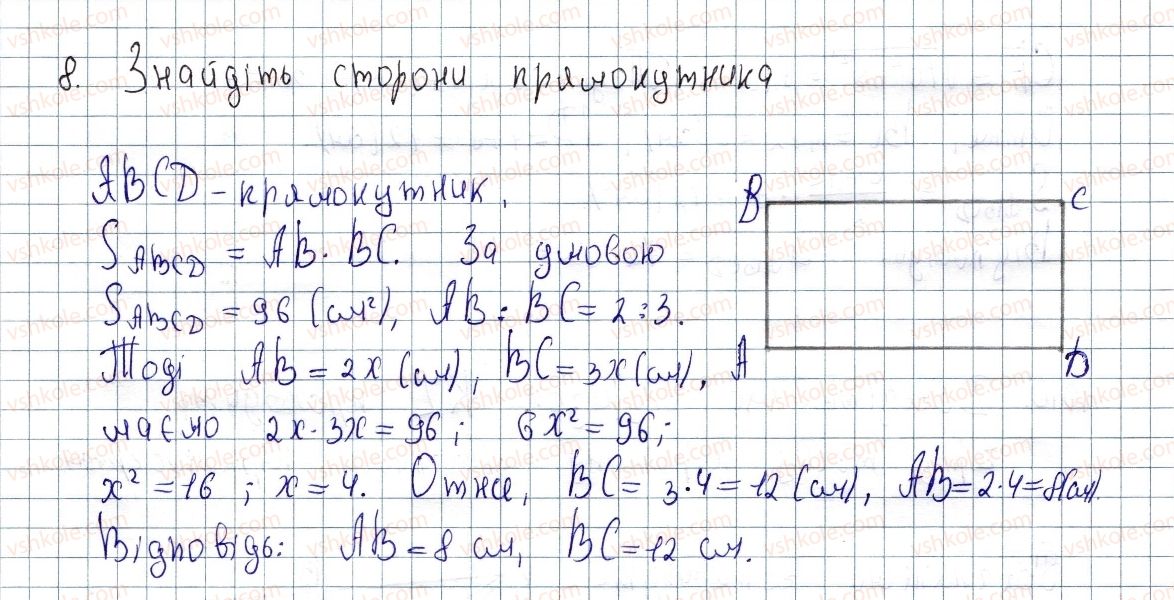 8. Знайдіть сторони прямокутника
ABCD - прямокутник.
S ABCD = AB · BC. За умовою
S ABCD = 96 (см²), AB : BC = 2 : 3.
Тоді AB = 2x (см), BC = 3x (см),
маємо 2x · 3x = 96; 6x² = 96;
x² = 16; x = 4. Отже, BC = 3·4 = 12 (см), AB = 2·4 = 8(см).
Відповідь: AB = 8 см, BC = 12 см.
B
C
A
D
vshkole.com